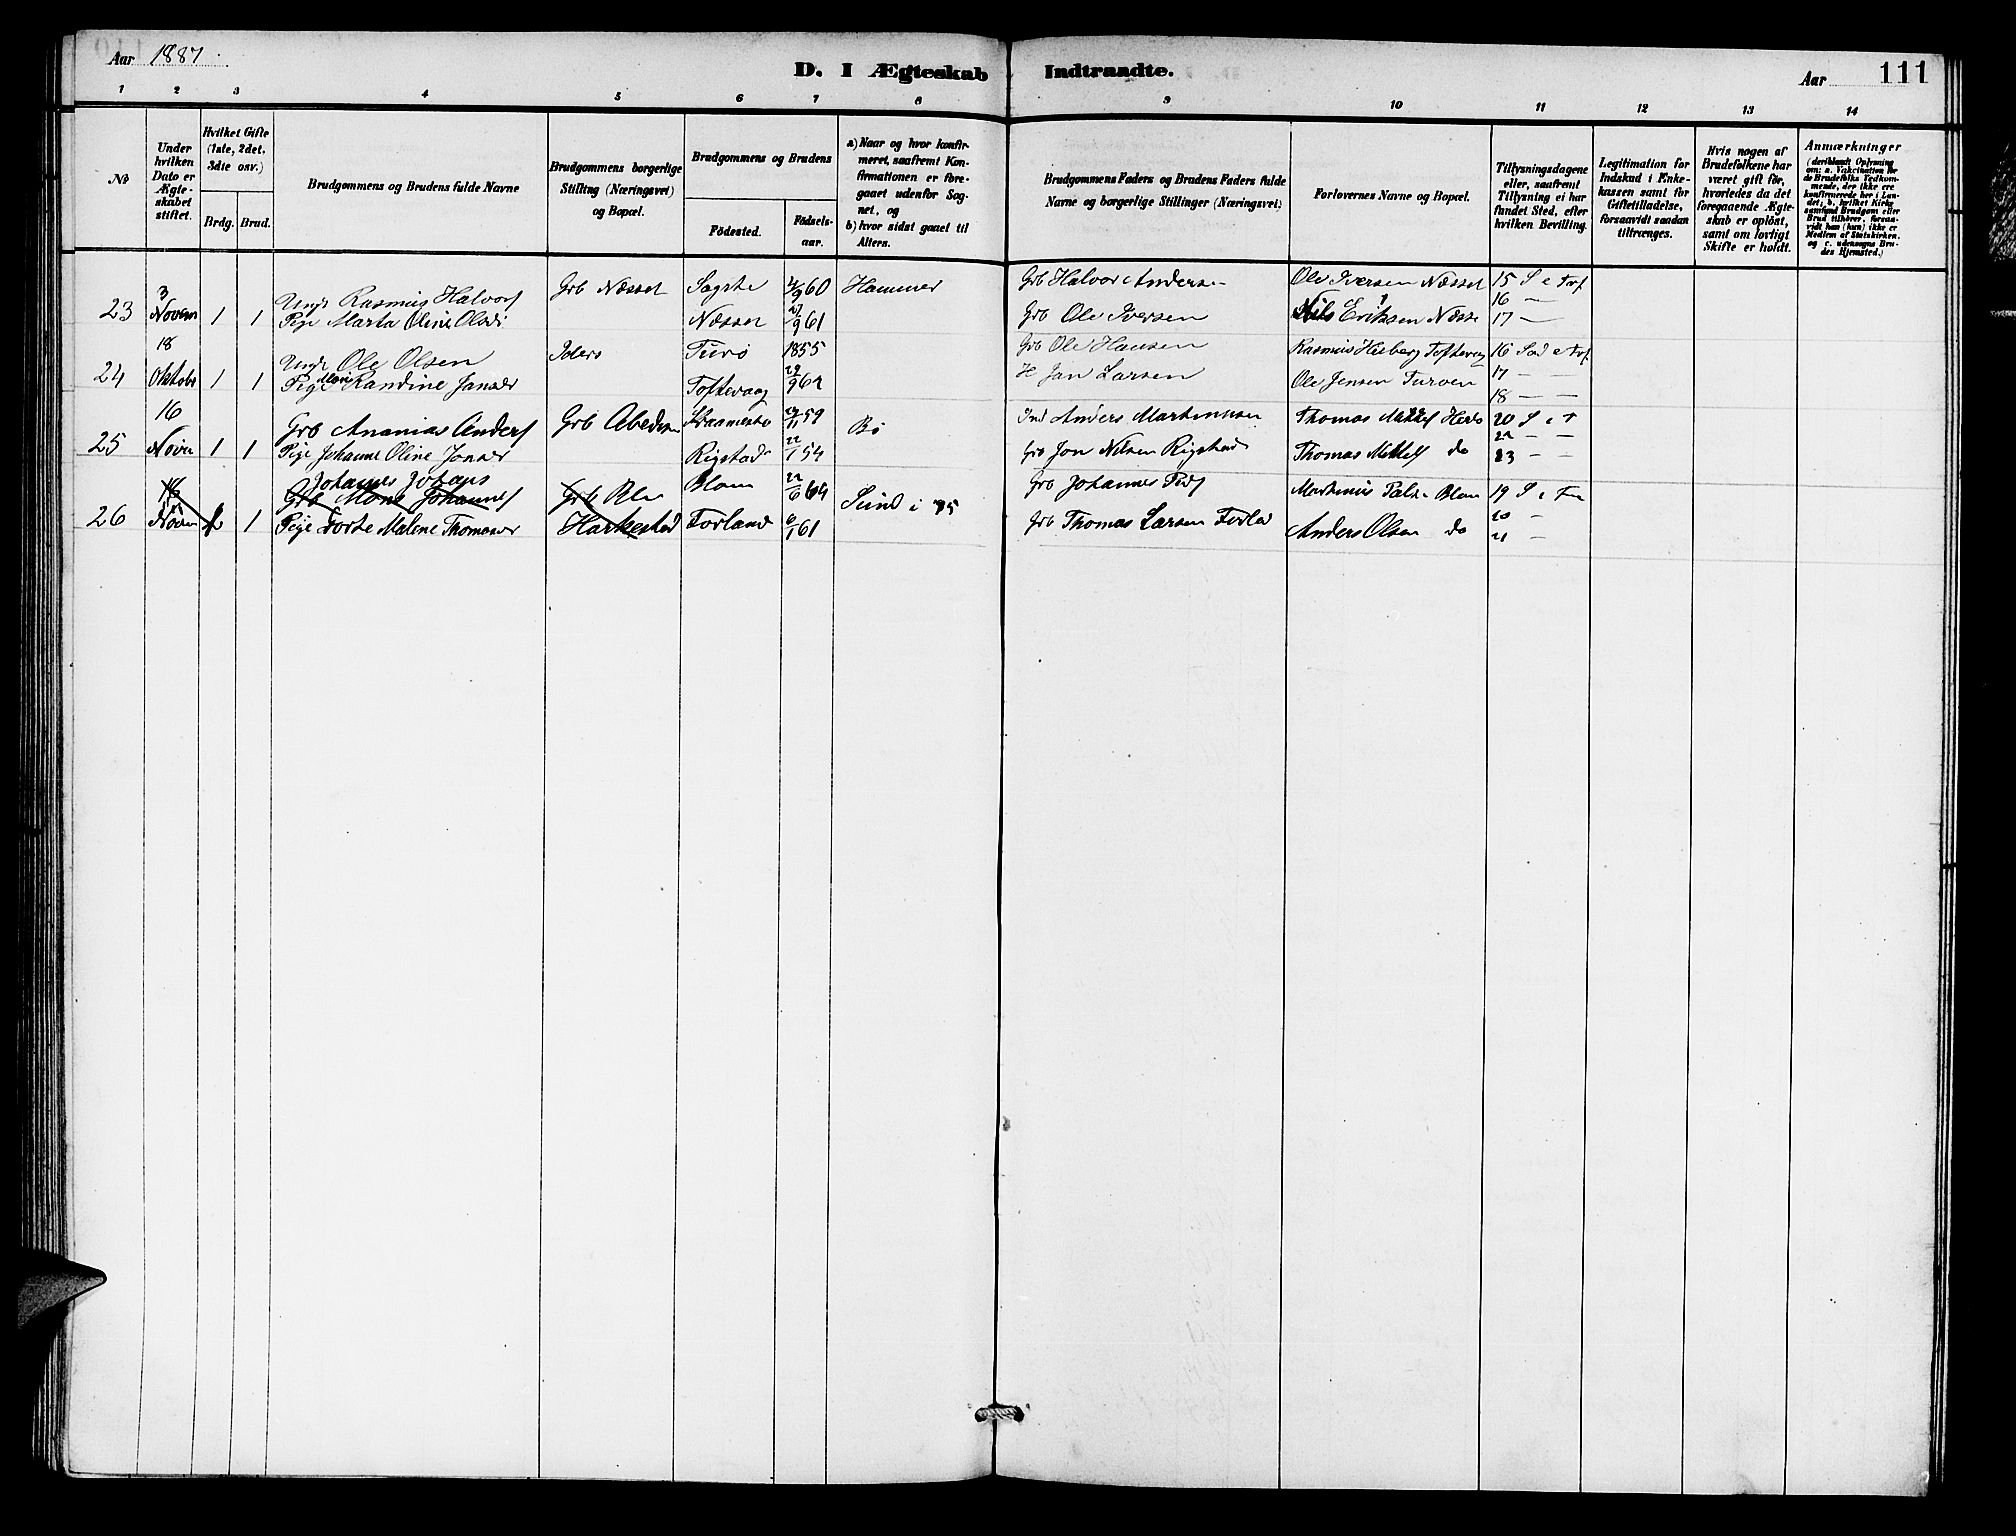 Aar 1887
D. I Ægteskab Indtraadte.
Aar
111
1 2 3 4 5 6 7 8 9 10 11 12 13 14
No
Under hvilken Dato er Ægteskabet stiftet.
Hvilket Gifte (1ste, 2det, 3die osv.)
Brdg. Brud.
Brudgommens og Brudens fulde Navne
Brudgommens borgerlige Stilling (Næringsvei) og Bopæl.
Brudgommens og Brudens
Födested. Födselsaar.
a) Naar og hvor konfirmeret, saafremt Konfirmationen er foregaaet udenfor Sognet, og
b) hvor sidst gaaet til Alters.
Brudgommens Faders og Brudens Faders fulde Navne og borgerlige Stillinger (Næringsvei)
Forlovernes Navne og Bopæl.
Tillysningsdagene eller, saafremt Tillysning ei har fundet Sted, efter hvilken Bevilling.
Legitimation for Indskud i Enkekassen samt for Giftetilladelse, forsaavidt saadan tiltrænges.
Hvis nogen af Brudefolkene har været gift för, hvorledes da det foregaaende Ægteskab er oplöst, samt om lovligt Skifte er holdt.
Anmærkninger
(deriblandt Oplysning om: a. Vakcination for de Brudefolks Vedkommende, der ikke ere konfirmerede her i Landet; b. hvilket Kirkesamfund Brudgom eller Brud tilhörer, forsaavidt han (hun) ikke er Medlem af Statskirken, og c. udensogns Brudes Hjemsted.)
3 Ungk Rasmus Halvors Grb Næsset 4/9 60 Hammer Grb Halvor Anderse Ole Iversen Næsset 15 S e Tref
23 Novem 1 1 Pige Marta Oline Olsd Næsset 9 61 Grb Ole Iversen Nils Eriksen Næsse 16 —
17 —
18 Ungk Ole Olsen Turø 1855 Grb Ole Hansen Rasmus Heiberg Toftevaag 16 Sød e Tref
24 Oktobr 1 1 Pige Mari Randine Janser Toftevaag 29/9 62 H Jan Larsen Ole Jensen Turøen 17 —
18 — —
16 Grb Ananias Anders Grb 11 59 Bø Ind Anders Martinusen Thomas Mikkels Herlø 20 S e T
25 Novem 1 1 Pige Johanne Oline Jonser Rigstad 22/1 54 Grb Jon Nilsen Rigstad Thomas Mikkels do 22 — —
23 — —
Johannes Johans
16 Grb Mons Johannes Grb Blom 22/6 64 Sund i 75 Grb Johannes Martinus Pals Blom 19 S e
26 Novem 1 Pige Dorte Malene Thomaser Harkestad Forland 6/1 61 Grb Thomas Larsen Forland Anders Olsen do 20 —
21 —